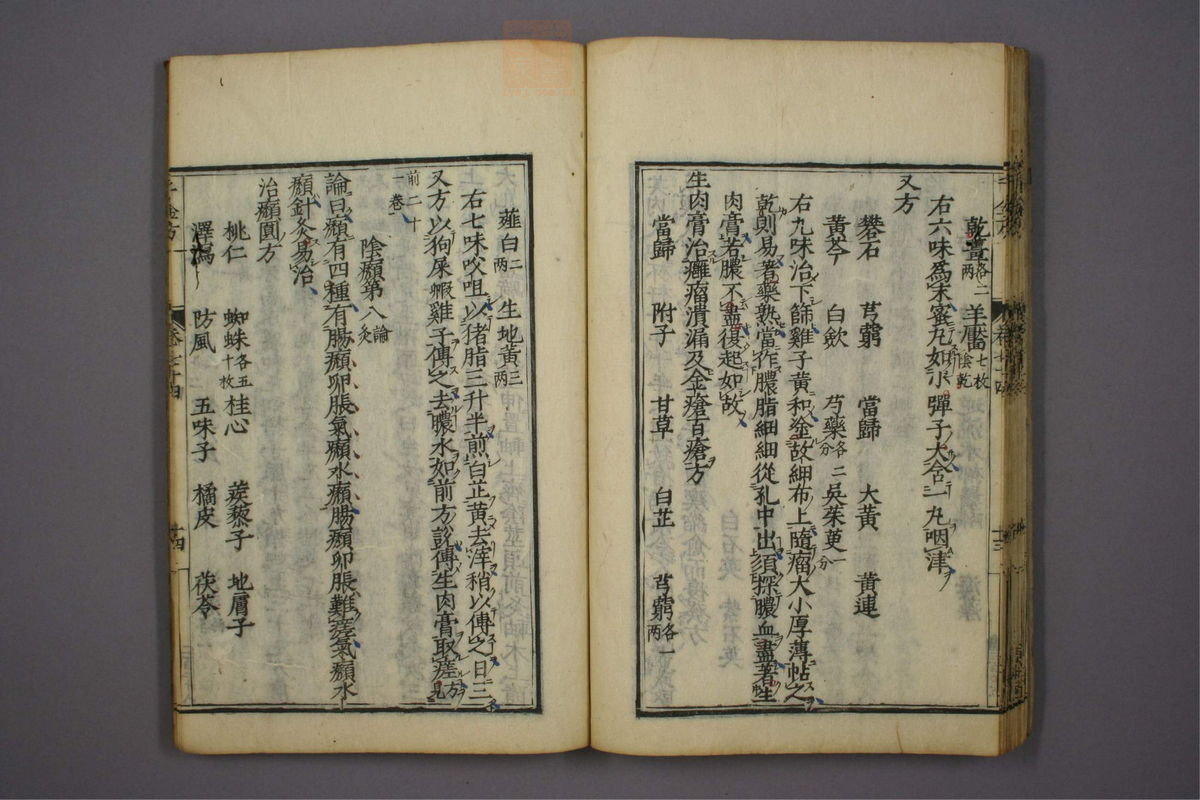 乾薑各二兩 羊靨七枚陰乾
右六味爲末蜜丸如小彈子大含一丸咽津
又方
礬石 芎藭 當歸 大黃 黃連
黃芩 白歛 芍藥各二分 吳茱萸一分
右九味治下篩雞子黃和塗故細布上隨瘤大小厚薄帖之
乾則易著藥熟當作膿脂細細從孔中出須探膿血盡著生
肉膏若膿不盡復起如故
生肉膏治癰瘤潰漏及金瘡百瘡方
當歸 附子 甘草 白芷 芎藭各一兩
薤白二兩 生地黃三兩
右七味㕮咀以猪脂三升半煎白芷黃去滓稍以傅之日三
又方以狗屎䘌雞子傅之去膿水如前方說傅生肉膏取瘥方見
前二十一卷
陰㿗第八論灸
論曰㿗有四種有腸㿗卵脹氣㿗水㿗腸㿗卵脹難瘥氣㿗水
㿗針灸易治
治㿗圓方
桃仁 蜘蛛各五十枚 桂心 蒺藜子 地膚子
澤瀉 防風 五味子 橘皮 茯苓
千金方
卷七十四
十四